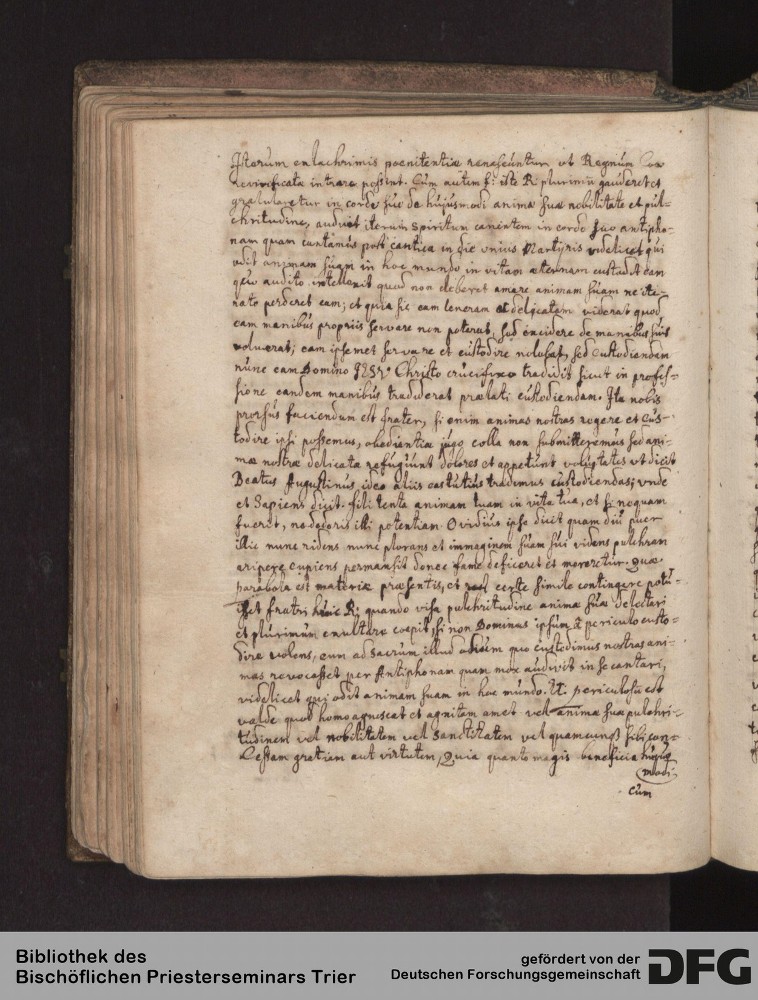 Iterum en lachrimis poenitentiæ renascuntur ut Regnum
revivificatæ intrare possint. Cum autem fr: iste R: plurimum gauderet et
gratularetur in corde suo de hujusmodi animæ suæ nobilitate et pul-
chritudine, audivit iterum Spiritum canentem in corde suo antipho-
nam quam cantamus post cantica in die unius Martyris videlicet qui
odit animam suam in hoc mundo in vitam æternam custodit eam
quo audito intellexit quod non deberet amare animam suam ne ite-
rato perderet eam; et quia sic eam teneram et delicatam viderat quod
eam manibus propriis servare non poterat, sed excidere de manibus suis
voluerat; eam ipsemet servare et custodire nolebat, sed custodiendam
nunc eam Domino JESU Christo crucifixo tradidit sicut in profes-
sione eandem manibus tradiderat prælati custodiendam. Ita nobis
prorsus faciendum est frater, si enim animas nostras regere et cus-
todire ipsi possemus, obedientiæ jugo colla non submitteremus sed ani-
mæ nostræ delicatæ refugiunt dolores et appetunt voluptates ut dicit
Beatus Augustinus, ideo aliis eas tutius tradimus custodiendas; unde
et Sapiens dicit. fili tenta animam tuam in vita tua, et si nequam
fuerit, ne dederis illi potentiam. Ovidius ipse dicit quam diu puer
illic nunc ridens nunc plorans et immaginem suam sui videns pulchram
aripere cupiens permansit donec fame deficeret et moreretur. Quæ
parabola est materiæ præsentis, et certe simile contingere potu-
isset fratri huic R: quando visa pulchritudine animæ suæ delectari
et plurimum exultare coepit, si non Dominus ipsum à periculo custo-
dire volens, eum ad sacrum illud quo custodimus nostras ani-
mas revocasset per Antiphonam quam mox audivit in se cantari,
videlicet qui odit animam suam in hoc mundo. Et periculosum est
valde quod homo agnoscat et agnitam amet vel animæ suæ pulchri-
tudinem vel nobilitatem vel Sanctitatem vel quamcunque sibi con-
cessam gratiam aut virtutem, Quia quanto magis beneficia hujus
modi
cum
Bibliothek des
Bischöflichen Priesterseminars Trier
gefördert von der
Deutschen Forschungsgemeinschaft
DFG